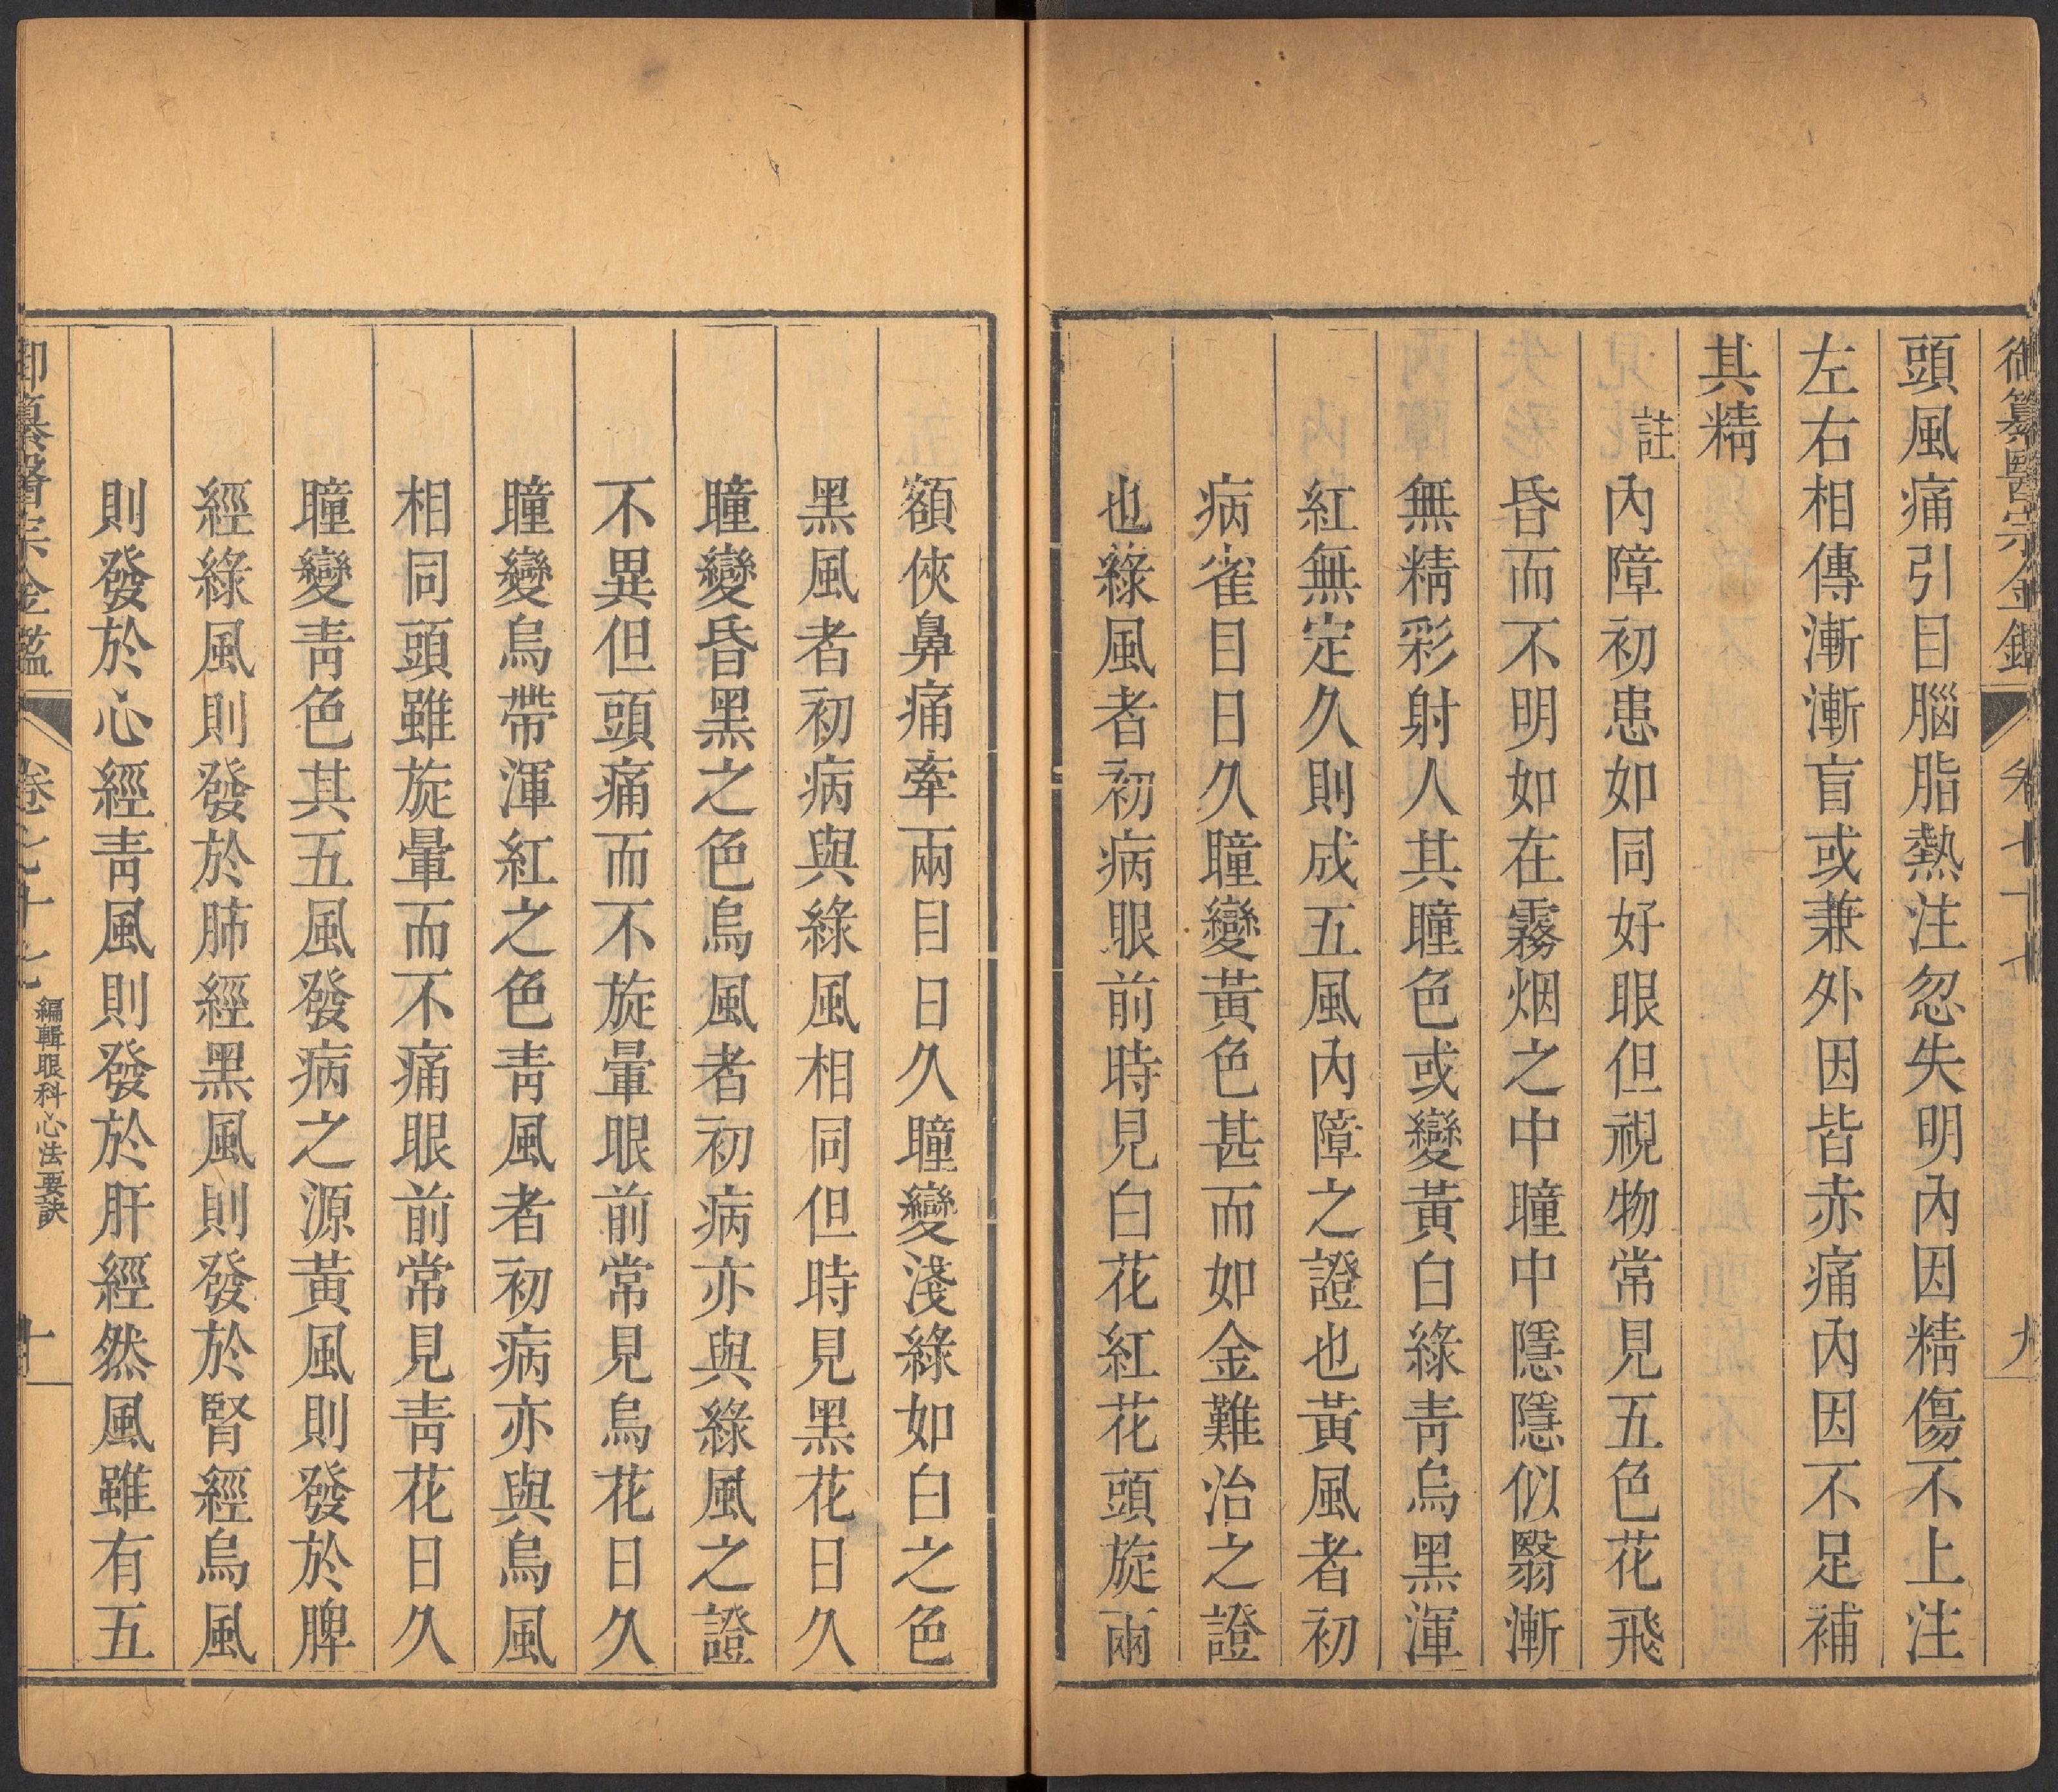 御纂醫宗金鑑 卷七十七 九
頭風痛引目腦脂熱注忽失明內因精傷不上注
左右相傳漸漸盲或兼外因皆赤痛內因不足補
其精
註內障初患如同好眼但視物常見五色花飛
昏而不明如在霧烟之中瞳中隱隱似翳漸
無精彩射人其瞳色或變黃白綠青烏黑渾
紅無定久則成五風內障之證也黃風者初
病雀目日久瞳變黃色甚而如金難治之證
也綠風者初病眼前時見白花紅花頭旋兩
額俠鼻痛牽兩目日久瞳變淺綠如白之色
黑風者初病與綠風相同但時見黑花日久
瞳變昏黑之色烏風者初病亦與綠風之證
不異但頭痛而不旋暈眼前常見烏花日久
瞳變烏帶渾紅之色青風者初病亦與烏風
相同頭雖旋暈而不痛眼前常見青花日久
瞳變青色其五風發病之源黃風則發於脾
經綠風則發於肺經黑風則發於腎經烏風
則發於心經青風則發於肝經然風雖有五
御纂醫宗金鑑 卷七十七 編輯眼科心法要訣 十